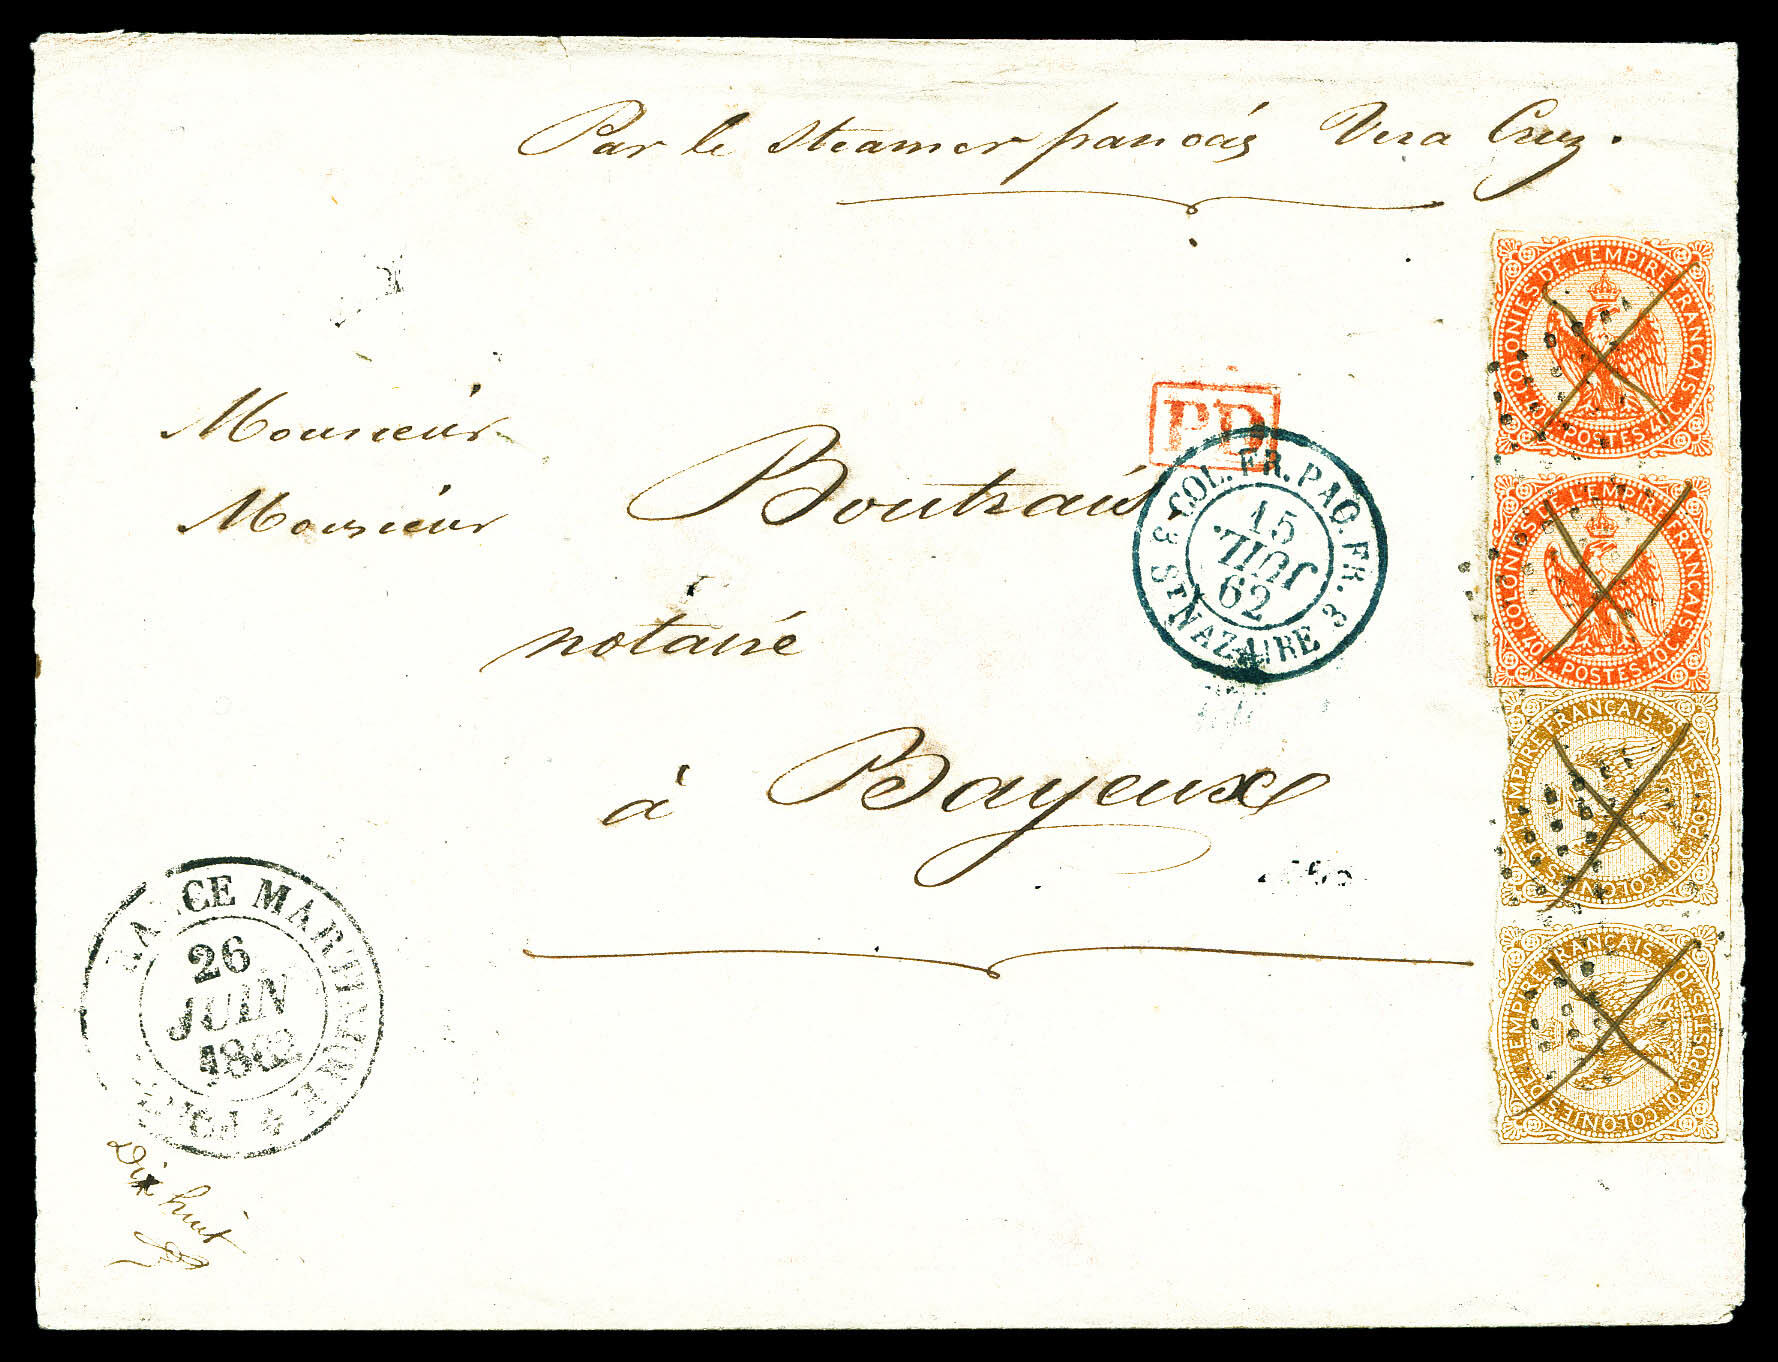 Par le steamer français Vera Cruz.
COLONIES DE L'EMPIRE FRANÇAIS
40C. POSTES 40C.
Monsieur
PD
Monsieur Boutrais
COL. FR. PAQ. FR. 3
15
JUIL.
62
3 ST NAZAIRE 3
COLONIES DE L'EMPIRE FRANÇAIS
40C. POSTES 40C.
notaire
à Bayeux
COLONIES DE L'EMPIRE FRANÇAIS
10C. POSTES 10C.
COLONIES DE L'EMPIRE FRANÇAIS
10C. POSTES 10C.
MARTINIQUE
26
JUIN
1862
Dix huit